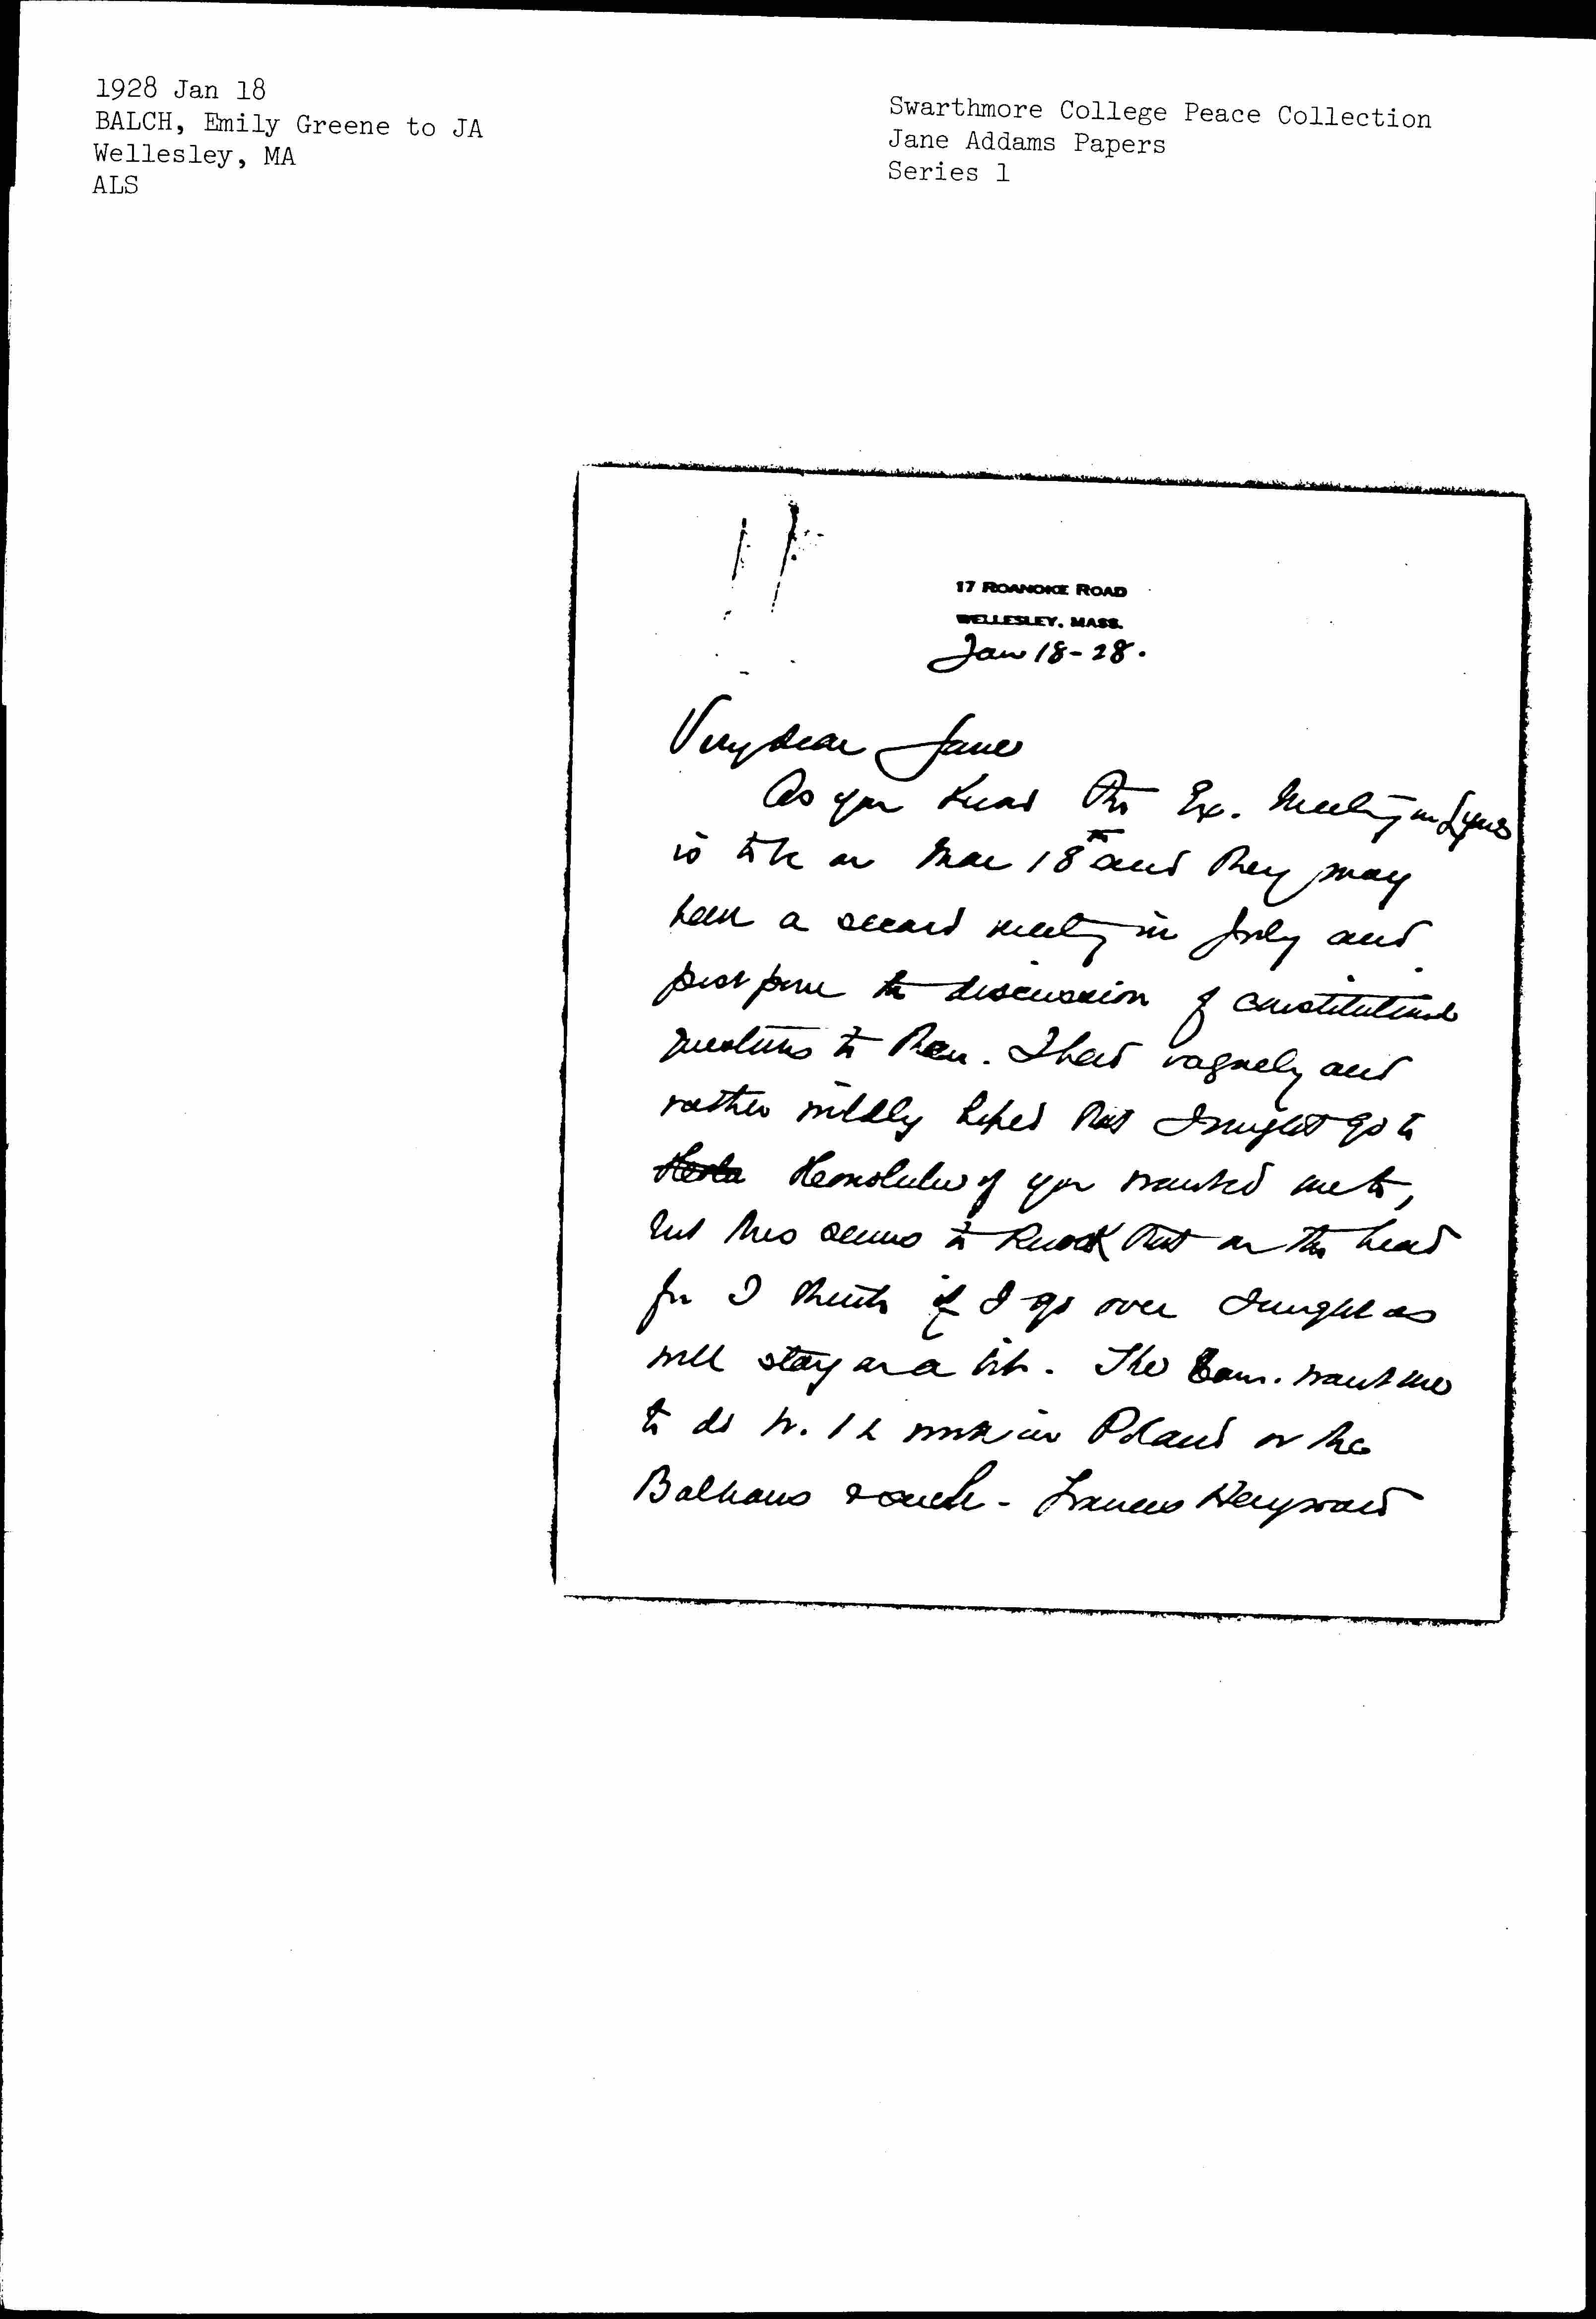 1928 Jan 18
BALCH, Emily Greene to JA
Wellesley, MA
ALS
Swarthmore College Peace Collection
Jane Addams Papers
Series 1
17 ROANOKE ROAD
WELLESLEY, MASS.
Jan 18-28.
Very dear Jane
As you know the Ex. Meeting in Lyons
is to be on Mar 18th and they may
have a second meeting in July and
postpone the discussion of constitutional
questions to then. I had vaguely and
rather mildly hoped that I might go to
Honolulu if you wanted me to,
but this seems to knock that on the head
for I think if I go over I might as
well stay on a bit. The Com. want me
to do W. I L work in Poland or the
Balkans &
Frances Hayward